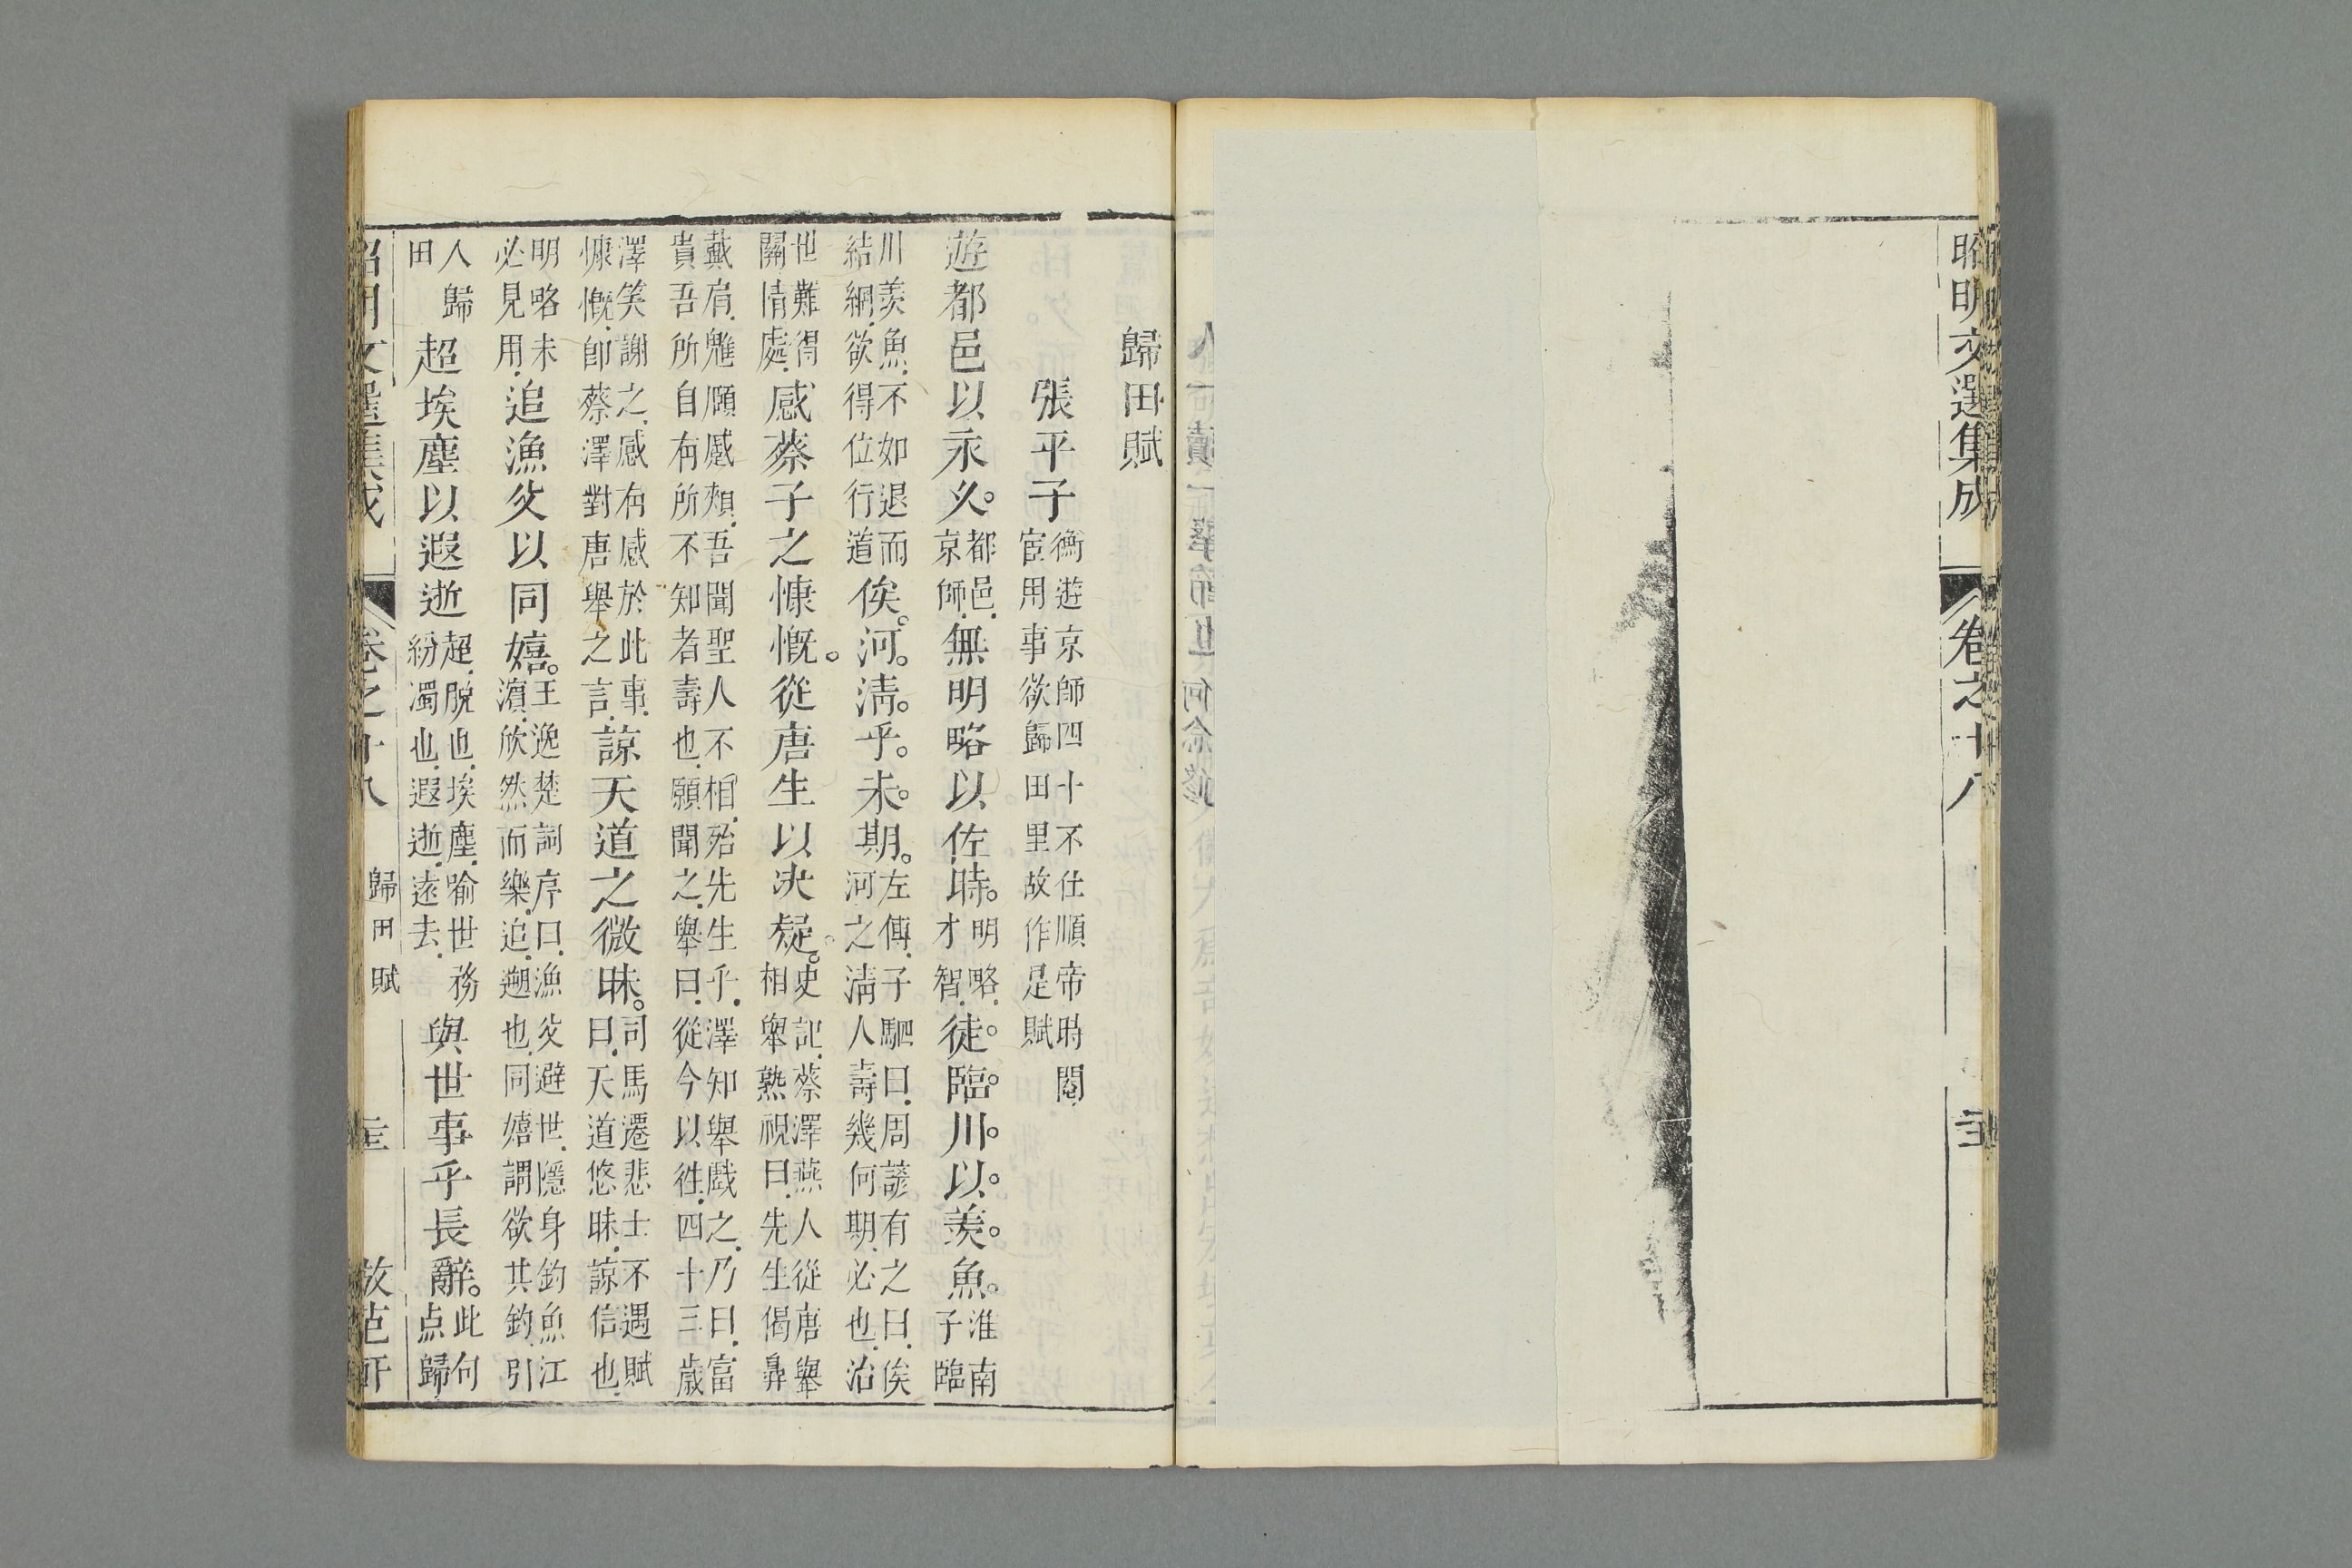 昭明文選集成
卷之十八
歸田賦
張平子
衡遊京師四十不仕順帝時閹
宦用事欲歸田里故作是賦
遊都邑以永久。
都邑.
京師.
無明略以佐時。
明略.
才智.
徒。臨。川。以。羨。魚。
淮南
子臨
川羨魚.不如退而
結網.欲得位行道
俟。河。淸。乎。未。期。
左傳.子駟曰.周諺有之曰.俟
河之淸人壽幾何期.必也.治
世難得
關情處.
感蔡子之慷慨。從唐生以决疑。
史記.蔡澤燕人從唐舉
相舉熟視曰.先生偈鼻
戴肩.魋顏蹙頞.吾聞聖人不相.殆先生乎.澤知舉戱之.乃曰.富
貴吾所自有所不知者壽也.願聞之.舉曰.從今以徃.四十三歲
澤笑謝之.感有感於此事.
慷慨.卽蔡澤對唐舉之言.
諒天道之微昧。
司馬遷悲士不遇賦
曰.天道悠昧.諒信也.
明略未
必見用.
追漁父以同嬉。
王逸楚詞序曰.漁父避世.隱身釣魚江
濵.欣然而樂.追.遡也.同嬉謂欲其釣.引
人歸
田
超埃塵以遐逝
超.脫也.埃塵.喻世務
紛濁也.遐逝.遠去.
與世事乎長辭。
此句
点歸
昭明文選集成
卷之十八
歸田賦